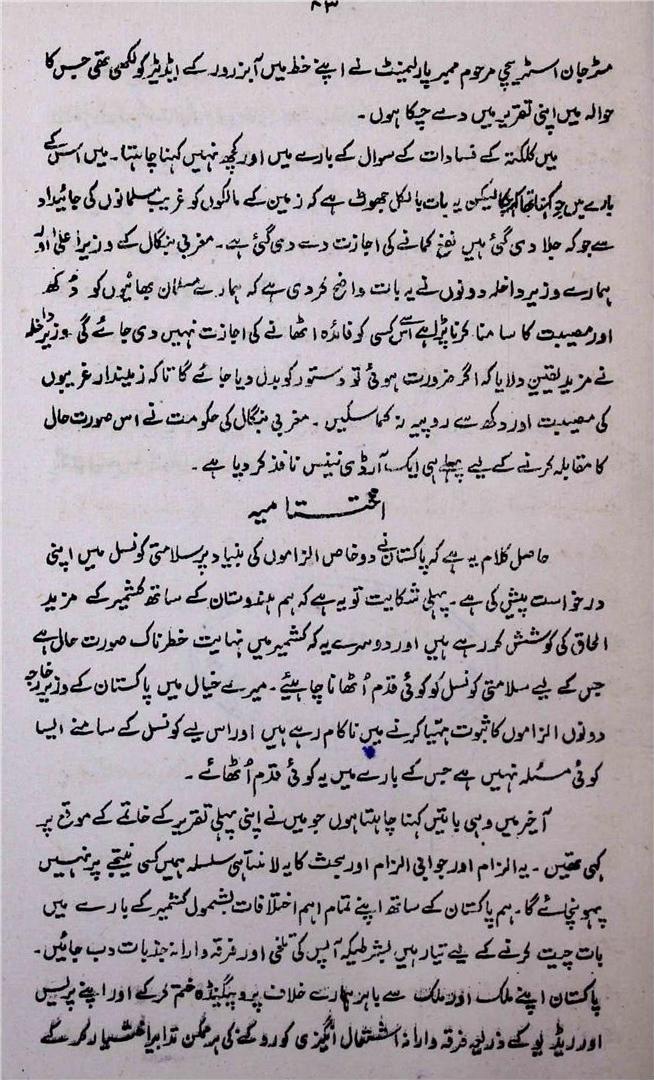 ۸۳
مسٹر جان اسٹریچی مرحوم ممبر پارلیمنٹ نے اپنے خط میں آبزرور کے ایڈیٹر کو لکھی تھی جس کا
حوالہ میں اپنی تقریر میں دے چکا ہوں۔
میں کلکتہ کے فسادات کے سوال کے بارے میں اور کچھ نہیں کہنا چاہتا۔ میں اس کے
بارے میں جو کہنا تھا کہہ چکا لیکن یہ بات بالکل جھوٹ ہے کہ زمین کے مالکوں کو غریب مسلمانوں کی جائیداد
سے جو کہ جلا دی گئی ہیں نفع کمانے کی اجازت دے دی گئی ہے۔ مغربی بنگال کے وزیر اعلیٰ اور
ہمارے وزیر داخلہ دونوں نے یہ بات واضح کر دی ہے کہ ہمارے مسلمان بھائیوں کو دکھ
اور مصیبت کا سامنا کرنا پڑا ہے اس سے کسی کو فائدہ اٹھانے کی اجازت نہیں دی جائے گی وزیر داخلہ
نے مزید یقین دلایا کہ اگر ضرورت ہوئی تو دستور کو بدل دیا جائے گا تاکہ زمیندار غریبوں
کی مصیبت اور دکھ سے روپیہ نہ کما سکیں۔ مغربی بنگال کی حکومت نے اس صورت حال
کا مقابلہ کرنے کے لیے پہلے ہی ایک آرڈی نینس نافذ کر دیا ہے۔
اختتامیہ
حاصل کلام یہ ہے کہ پاکستان نے دو خاص الزاموں کی بنیاد پر سلامتی کونسل میں اپنی
درخواست پیش کی ہے۔ پہلی شکایت تو یہ ہے کہ ہم ہندوستان کے ساتھ کشمیر کے مزید
الحاق کی کوشش کر رہے ہیں اور دوسرے یہ کہ کشمیر میں نہایت خطرناک صورت حال ہے
جس کے لیے سلامتی کونسل کو کوئی قدم اُٹھانا چاہیئے۔ میرے خیال میں پاکستان کے وزیر خارجہ
دونوں الزاموں کا ثبوت مہیا کرنے میں ناکام رہے ہیں اور اس لیے کونسل کے سامنے ایسا
کوئی مسئلہ نہیں ہے جس کے بارے میں یہ کوئی قدم اُٹھائے۔
آخر میں وہی باتیں کہنا چاہتا ہوں جو میں نے اپنی پہلی تقریر کے خاتمے کے موقع پر
کہی تھیں۔ یہ الزام اور جوابی الزام اور بحث کا یہ لامتناہی سلسلہ ہمیں کسی نتیجے پر نہیں
پہونچائے گا۔ ہم پاکستان کے ساتھ اپنے تمام اہم اختلافات بشمول کشمیر کے بارے میں
بات چیت کرنے کے لیے تیار ہیں بشرطیکہ آپس کی تلخی اور فرقہ وارانہ جذبات دب جائیں۔
پاکستان اپنے ملک اور ملک سے باہر ہمارے خلاف پروپیگنڈہ ختم کر کے اور اپنے پریس
اور ریڈیو کے ذریعہ فرقہ وارانہ اشتعال انگیزی کو روکنے کی ہر ممکن تدابیر اختیار کر کے